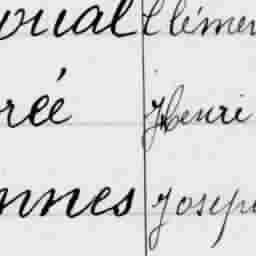 oual Clémen
rée Henri
nnes Joseph